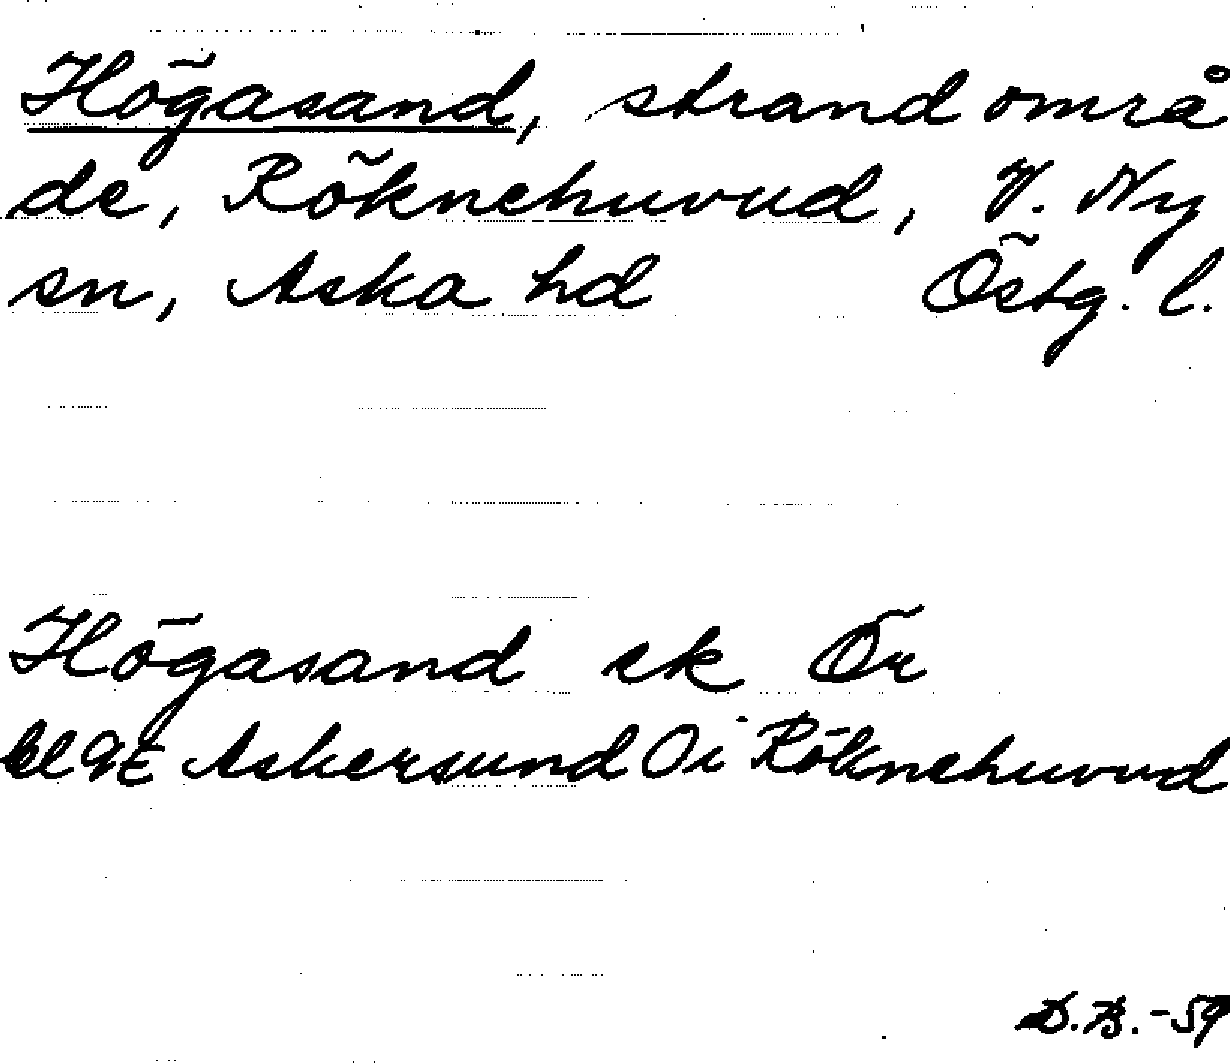 Högasand, strandområ
de, Röknehuvud, V. Ny
sn, Aska hd Östg. l.
Högasand ek Ör
bl 9E Askersund Ö i Röknehuvud
D.B. -59